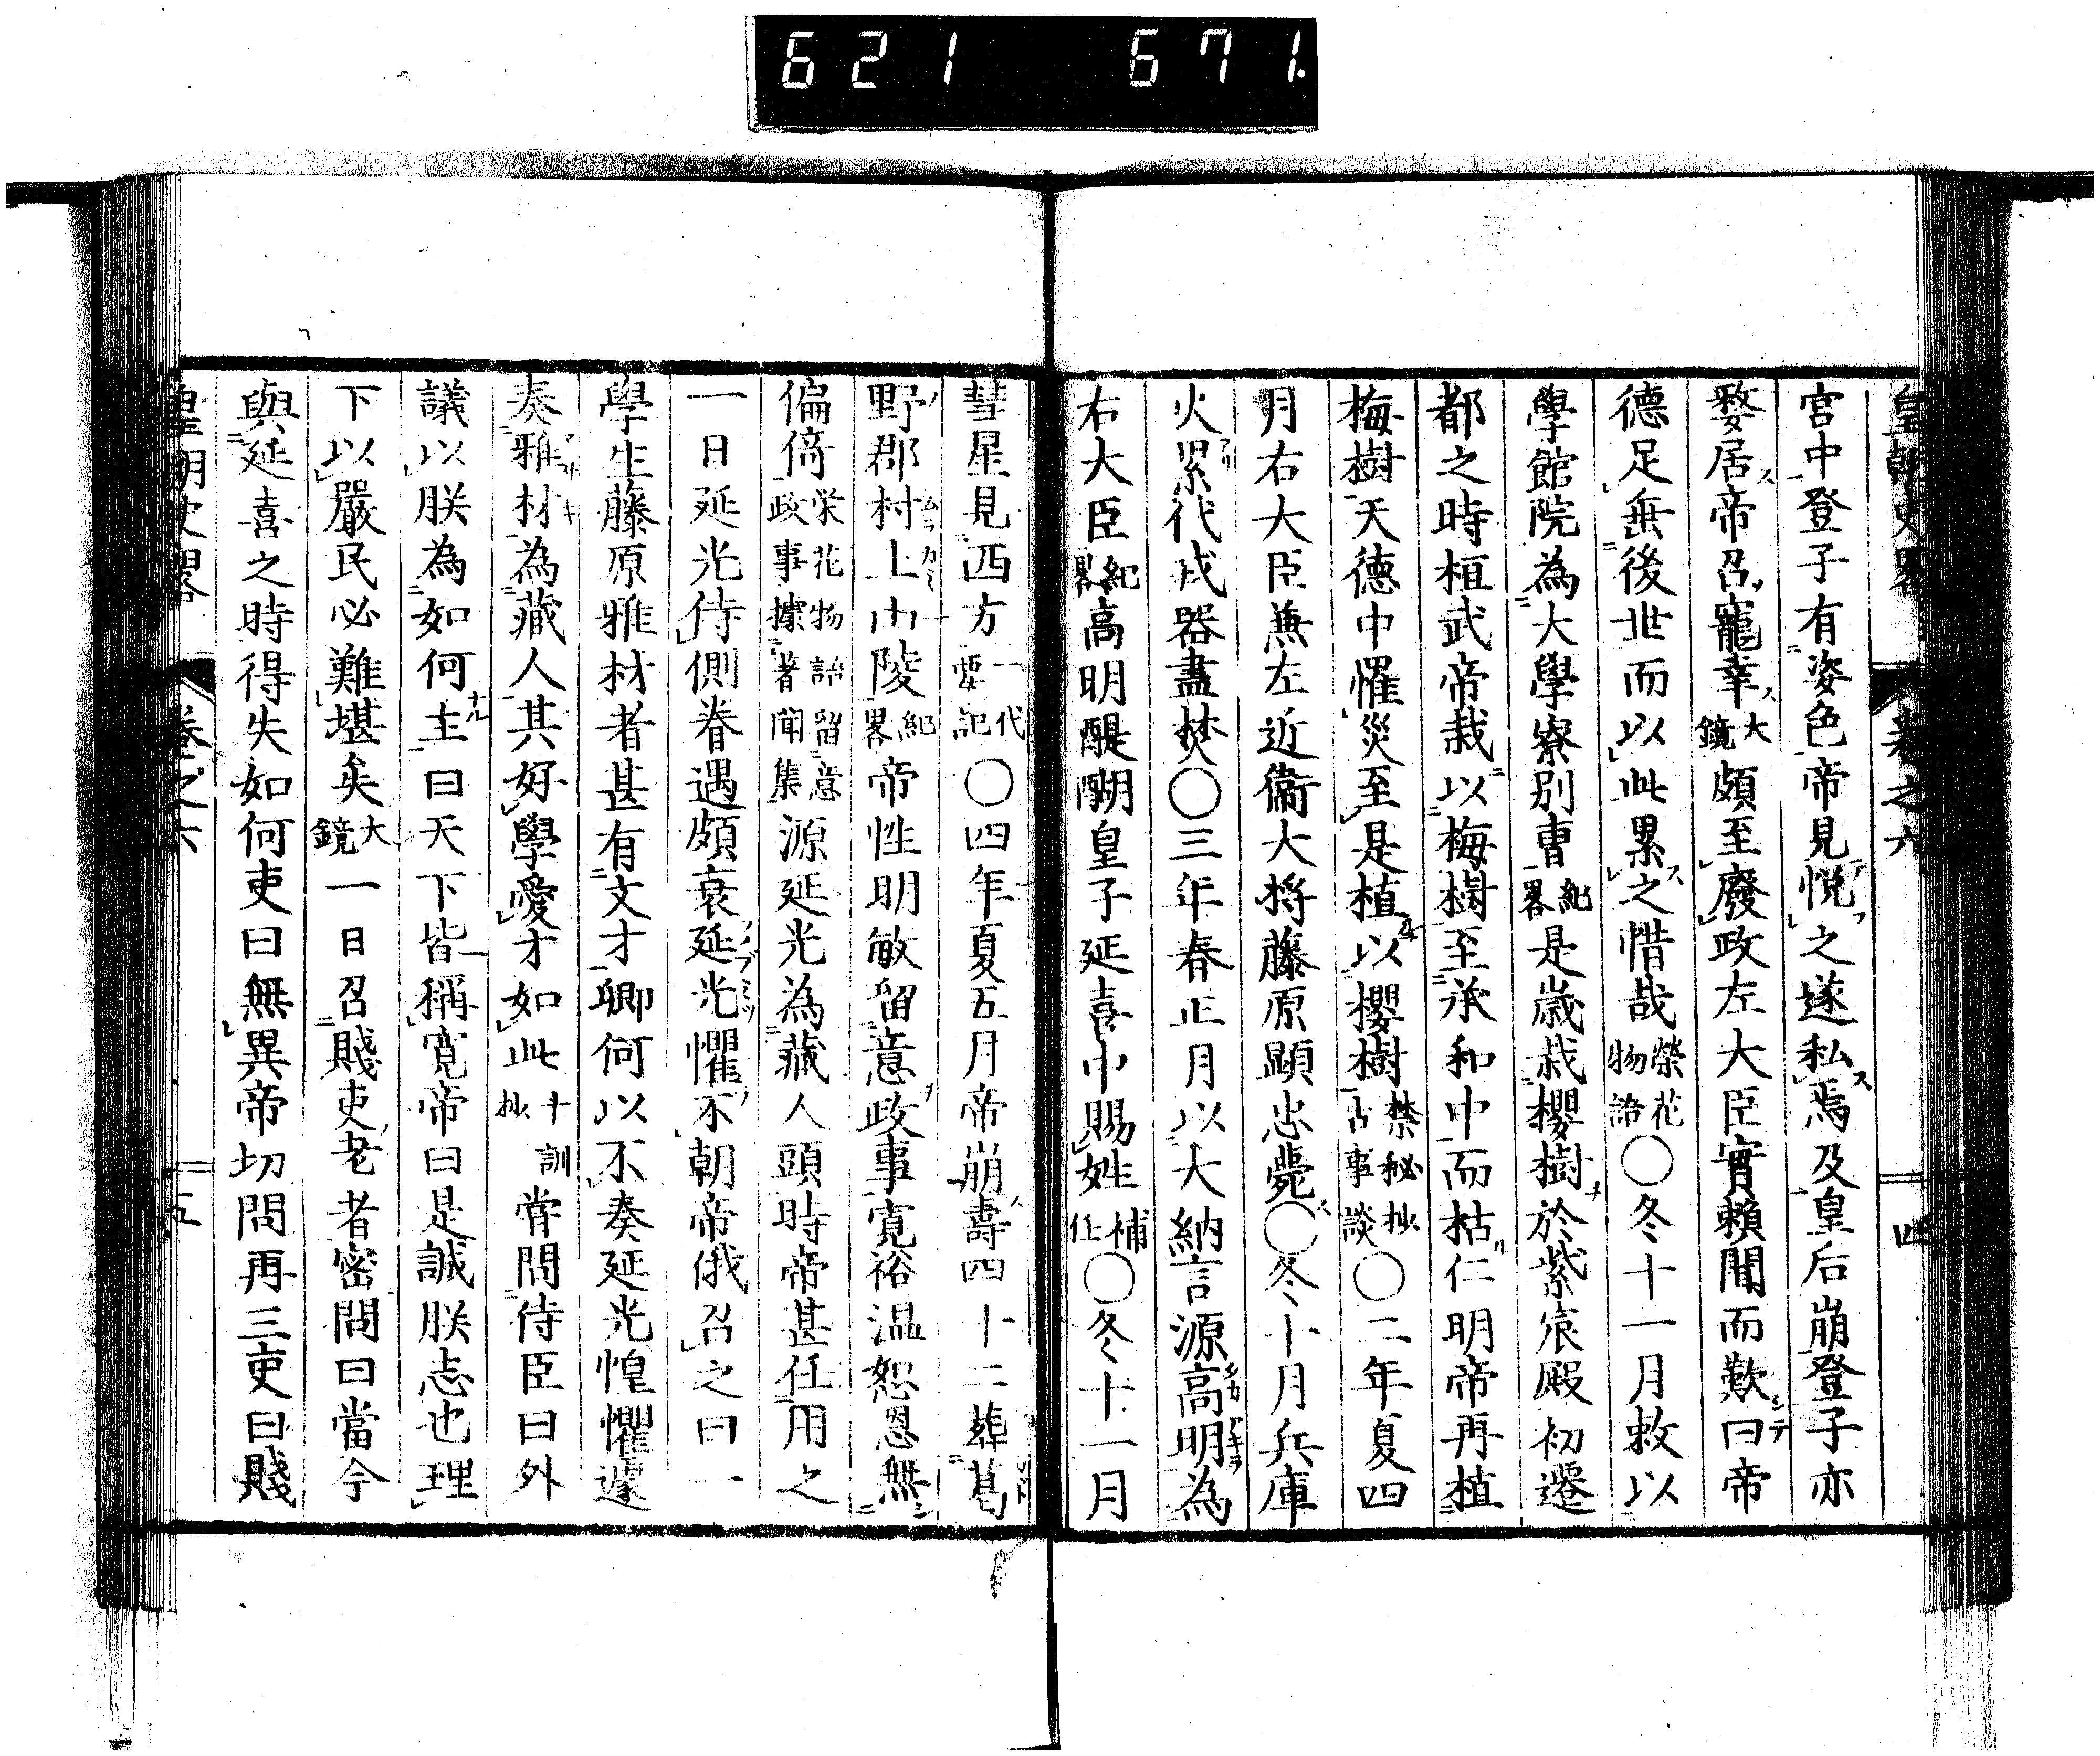 621 671.
皇朝史畧 卷之六 四
宮中登子有姿色帝見悅之遂私焉及皇后崩登子亦
嫠居帝召寵幸大鏡頗至廢政左大臣實賴聞而歎曰帝
德足垂後世而以此累之惜哉榮花物語○冬十一月敕以
學館院為大學寮別曹紀畧是歲栽櫻樹於紫宸殿初遷
都之時桓武帝栽以梅樹至承和中而枯仁明帝再植
梅樹天德中罹災至是植以櫻樹禁秘抄古事談○二年夏四
月右大臣兼左近衞大將藤原顯忠薨○冬十月兵庫
火累代戎器盡焚○三年春正月以大納言源高明為
右大臣紀畧高明醍醐皇子延喜中賜姓補任○冬十一月
彗星見西方一代要記○四年夏五月帝崩壽四十二葬葛
野郡村上山陵紀畧帝性明敏留意政事寬裕溫恕恩無
偏倚榮花物語留意政事據著聞集源延光為藏人頭時帝甚任用之
一日延光侍側眷遇頗衰延光懼不朝帝俄召之曰一
學生藤原雅材者甚有文才卿何以不奏延光惶懼遽
奏雅材為藏人其好學愛才如此十訓抄嘗問侍臣曰外
議以朕為如何主曰天下皆稱寬帝曰是誠朕志也理
下以嚴民必難堪矣大鏡一日召賤吏老者密問曰當今
與延喜之時得失如何吏曰無異帝切問再三吏曰賤
皇朝史畧 卷之六 五